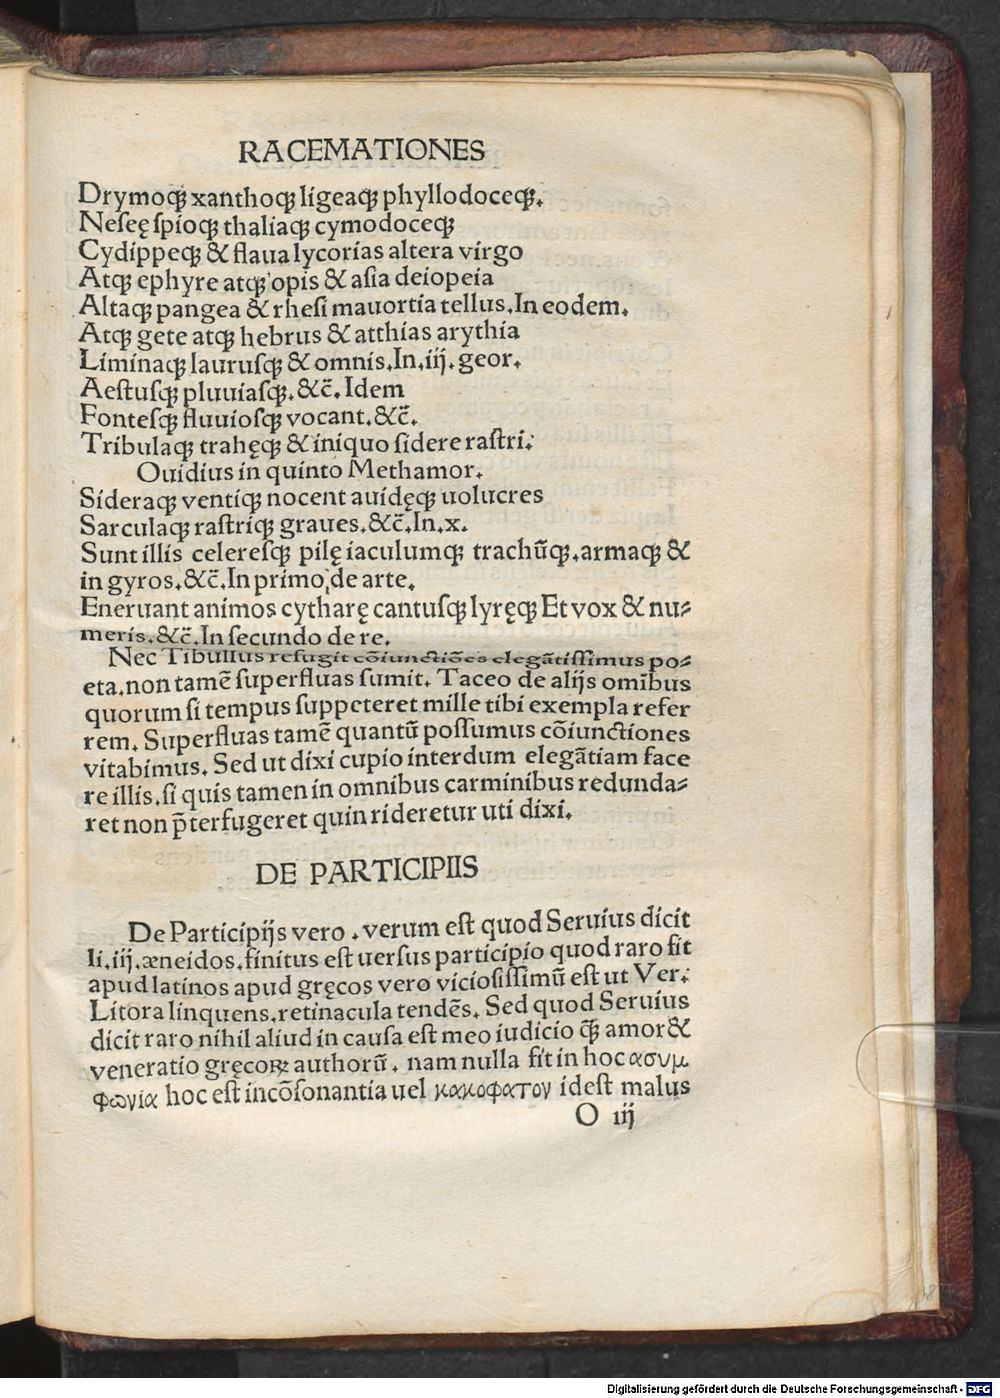 RACEMATIONES
Drymoqꝫ xanthoqꝫ ligeaqꝫ phyllodoceqꝫ.
Neseę spioqꝫ thaliaqꝫ cymodoceqꝫ
Cydippeqꝫ & flaua lycorias altera virgo
Atqꝫ ephyre atqꝫ opis & asia deiopeia
Altaqꝫ pangea & rhesi mauortia tellus.In eodem.
Atqꝫ gete atqꝫ hebrus & atthias arythia
Liminaqꝫ laurusqꝫ & omnis.In.iij.geor.
Aestusqꝫ pluuiasqꝫ.&c̃.Idem
Fontesqꝫ fluuiosqꝫ vocant.&c̃.
Tribulaqꝫ trahęqꝫ & iniquo sidere rastri.
Ouidius in quinto Methamor.
Sideraqꝫ ventiqꝫ nocent auidęqꝫ uolucres
Sarculaqꝫ rastriqꝫ graues.&c̃.In.x.
Sunt illis celeresqꝫ pilę iaculumqꝫ trachũqꝫ.armaqꝫ &
in gyros.&c̃.In primo de arte.
Eneruant animos cytharę cantusqꝫ lyręqꝫ Et vox & nu⸗
meris.&c̃.In secundo de re.
Nec Tibullus refugit cõiunctiões elegãtissimus po⸗
eta.non tamẽ superfluas sumit. Taceo de alijs omĩbus
quorum si tempus suppeteret mille tibi exempla refer
rem. Superfluas tamẽ quantũ possumus cõiunctiones
vitabimus. Sed ut dixi cupio interdum elegãtiam face
re illis.si quis tamen in omnibus carminibus redunda⸗
ret non p̃terfugeret quin rideretur uti dixi.
DE PARTICIPIIS
De Participijs vero .verum est quod Seruius dicit
li.iij.æneidos.finitus est uersus participio quod raro fit
apud latinos apud gręcos vero viciosissimũ est ut Ver.
Litora linquens.retinacula tendẽs. Sed quod Seruius
dicit raro nihil aliud in causa est meo iudicio q̃ꝫ amor &
veneratio gręcoꝝ authorũ. nam nulla fit in hoc ασυμ
φωνια hoc est incõsonantia uel κακοφατον idest malus
O iij
Digitalisierung gefördert durch die Deutsche Forschungsgemeinschaft - DFG